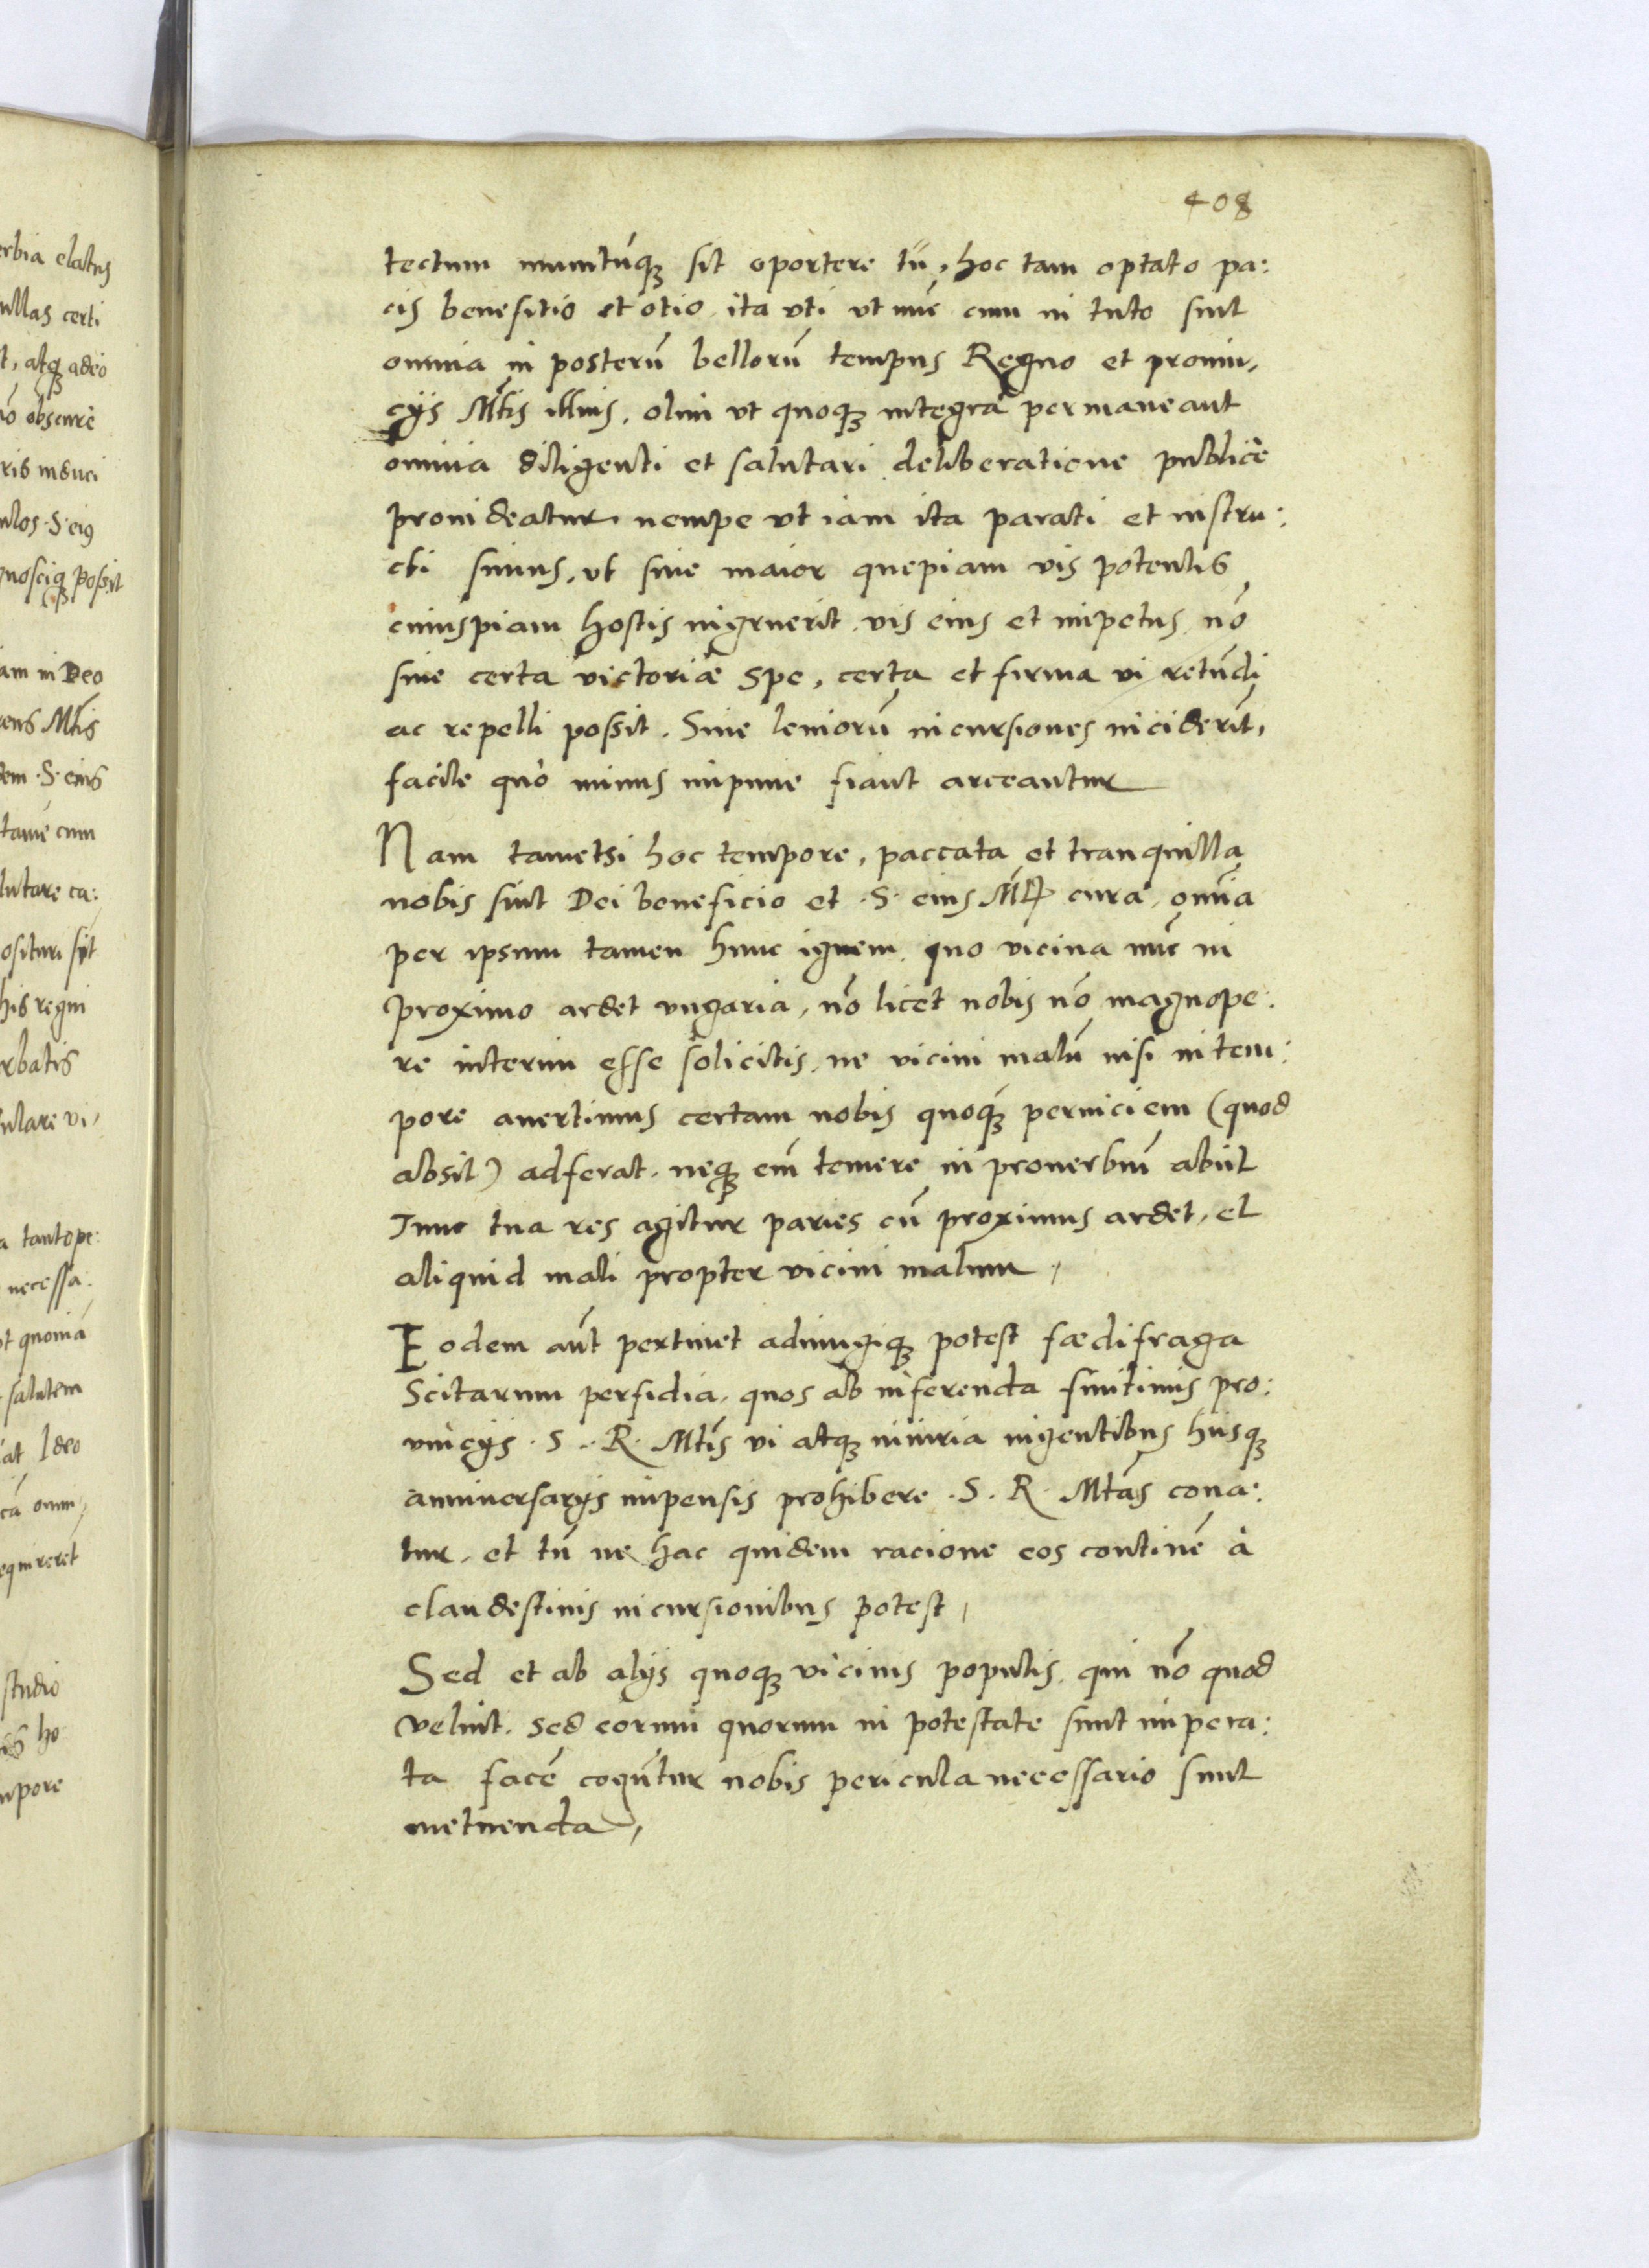 408
tectum munitúq; sit oportere tñ, hoc tam optato pa:
cis benefitio et otio ita vti vt nūc cum in tuto sint
omnia in posterū bellorū tempus Regno et prouin,
cijs Mtis illius, olim vt quoq; integra permaneant
omnia diligenti et salutari deliberatione publicè
prouideatur. nempe vt iam ita parati et instru:
cti simus, vt siue maior quepiam vis potentis
cuiuspiam hostis ingruerit vis eius et impetus nō
sine certa victoriæ spe, certa et firma vi retūdi
ac repelli possit. Siue leuiorū incursiones inciderīt,
facile quò minus impune fiant arceantur
Nam tametsi hoc tempore, paccata et tranquilla
nobis sint Dei beneficio et .S. eius Mtis cura omīa
per ipsum tamen hunc ignem quo vicina nūc in
proximo ardet vngaria, nō licet nobis nō magnope:
re interim esse solicitis, ne vicini malū nisi in tem:
pore auertimus certam nobis quoq; perniciem (quod
absit) adferat. neq; em̄ temere in prouerbiū abiit
Tunc tua res agitur paries cū proximus ardet, et
aliquid mali propter vicini malum,
Eodem aūt pertinet adiungiq; potest fœdifraga
Scitarum perfidia, quos ab inferenda finitimis pro:
uincijs .S. R. Mtis vi atq; iniuria ingentibus hijsq;
anniuersarijs impensis prohibere .S. R. Mtas cona:
tur, et tñ ne hac quidem racione eos continē à
clandestinis incursionibus potest,
Sed et ab alijs quoq; vicinis populis qui nō quod
velint, sed eorum quorum in potestate sunt impera:
ta facē cogūtur nobis pericula necessario sunt
metuenda,